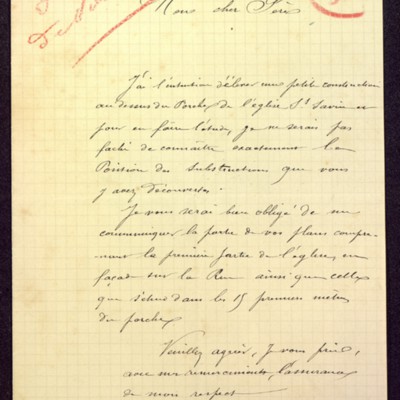 Mon cher Père,
J'ai l'intention d'élever une petite construction
au dessus du Porche de l'église St Savin et
pour en faire l'étude, je ne serais pas
faché de connaître exactement la
Position des substructions que vous
y avez découvertes.
Je vous serai bien obligé de me
communiquer la partie de vos plans compre-
nant la première partie de l'église, en
façade sur la Rue ainsi que celle
que s'étend dans les 15 premiers mètres
du porche.
Veuillez agréer, je vous prie,
avec mes remerciements, l'assurance
de mon respect